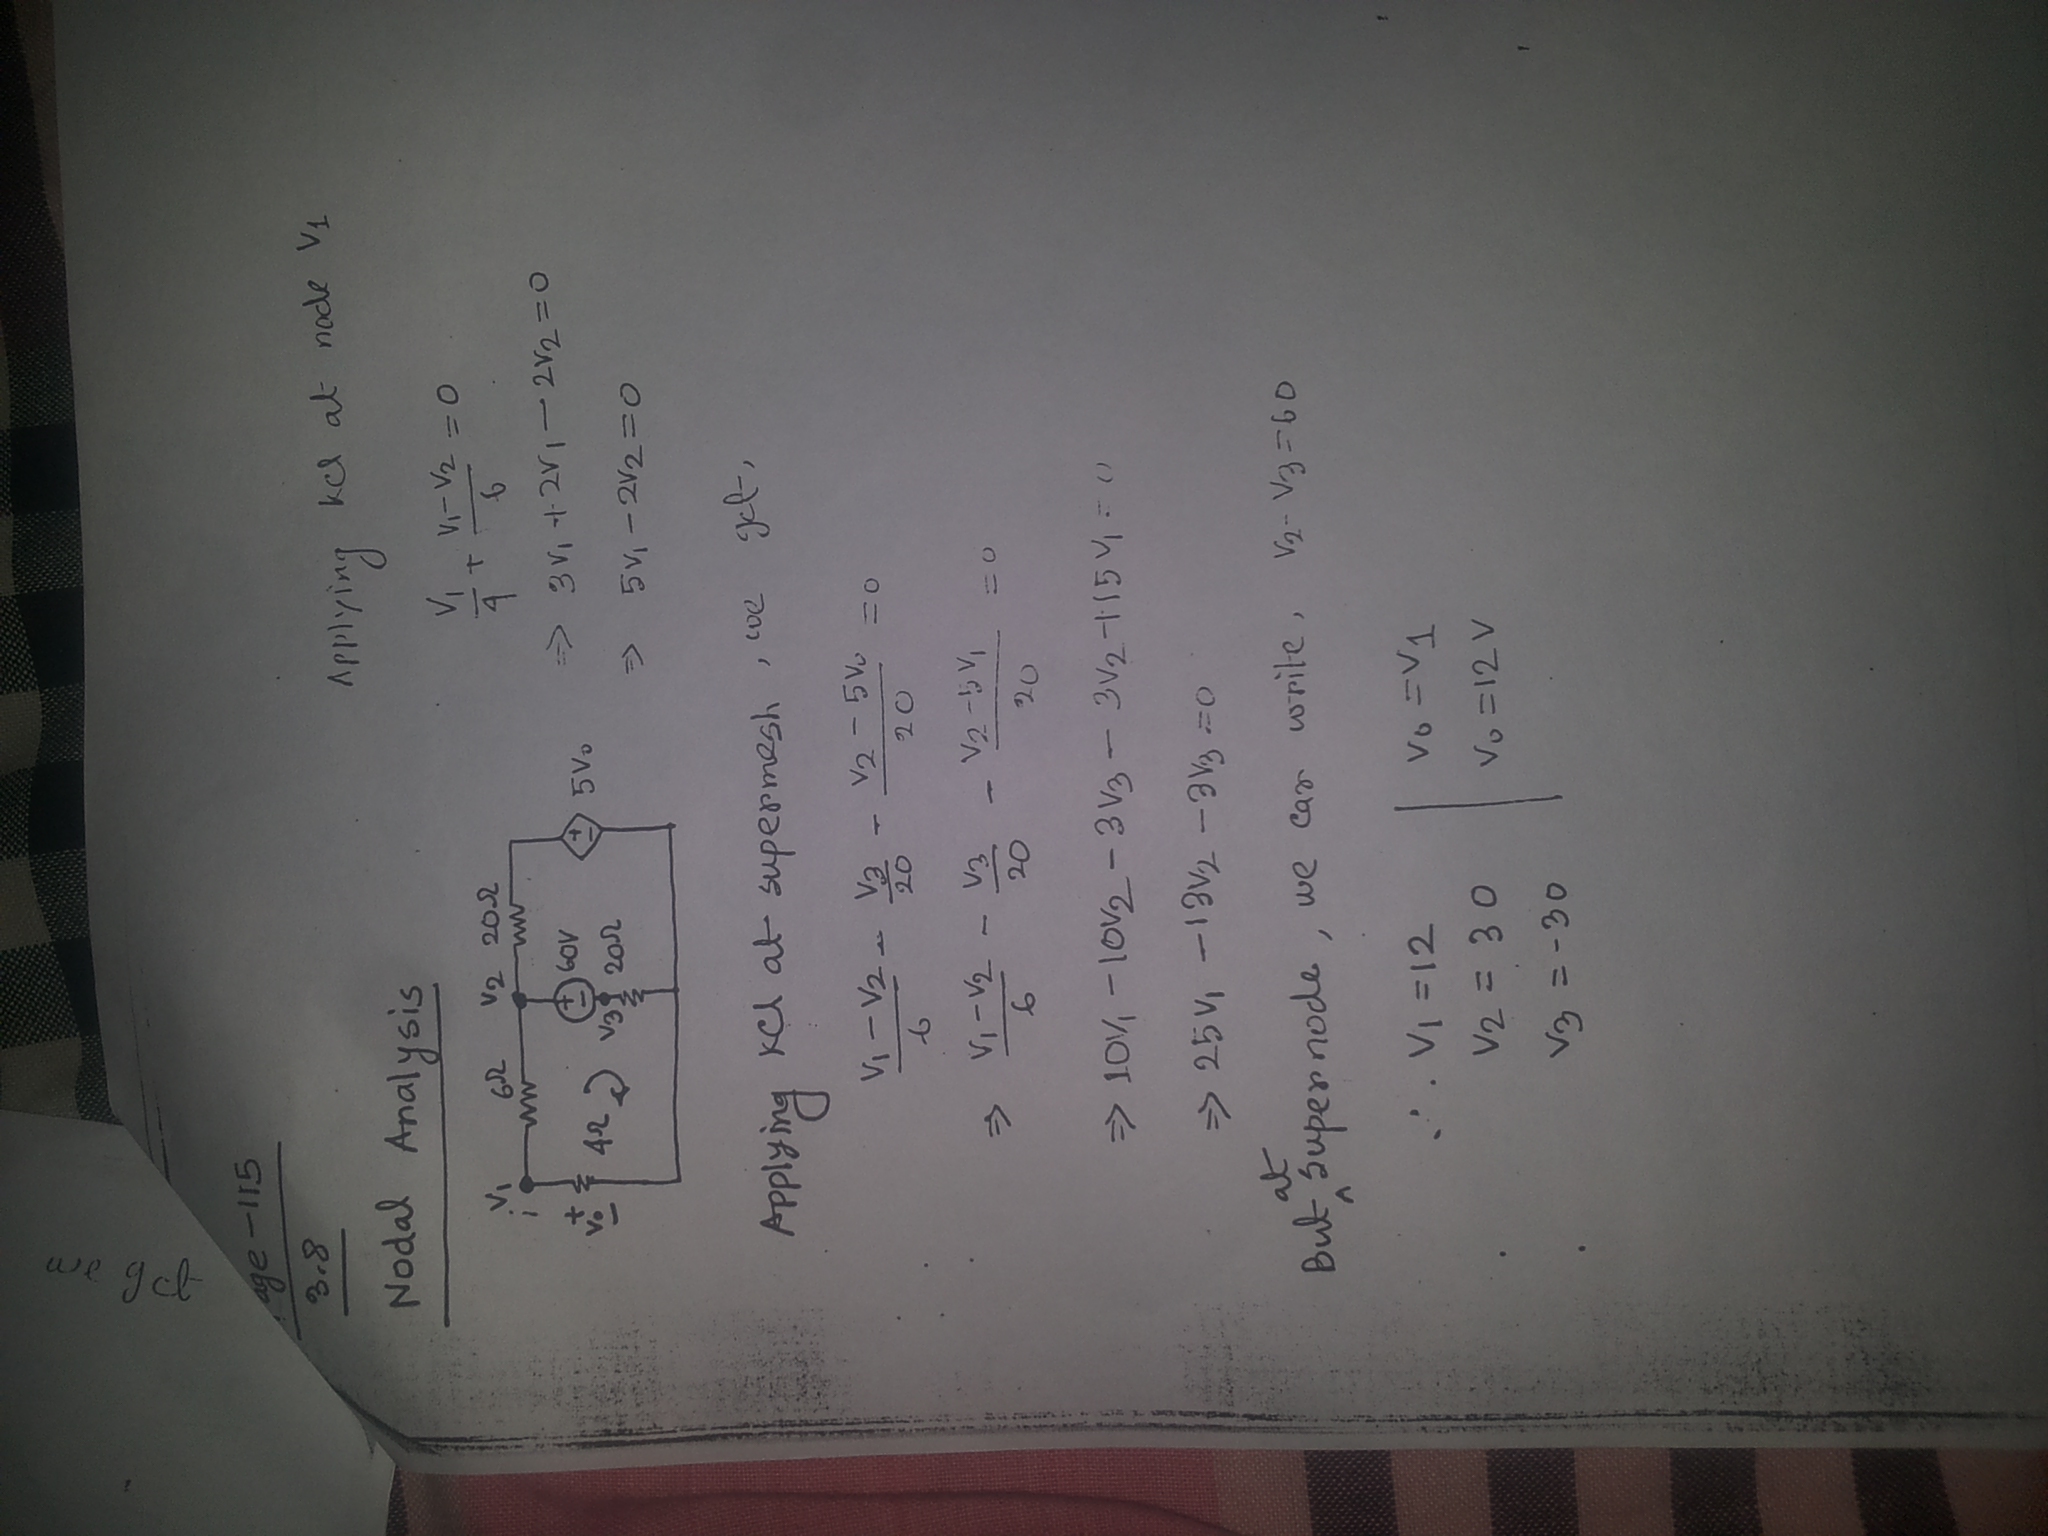 we get
age-115
3.8
Nodal Analysis
V1 6Ω V2 20Ω
i
+ V0 - 4Ω + - 60V + - 5V0
V3 20Ω
Applying kcl at node V1
V1/4 + V1-V2/6 = 0
⇒ 3V1 + 2V1 - 2V2 = 0
⇒ 5V1 - 2V2 = 0
Applying kcl at supermesh, we get,
V1-V2/6 - V3/20 - V2-5V0/20 = 0
⇒ V1-V2/6 - V3/20 - V2-5V1/20 = 0
⇒ 10V1 - 10V2 - 3V3 - 3V2 + 15V1 = 0
⇒ 25V1 - 13V2 - 3V3 = 0
But at supernode, we can write, V2-V3 = 60
∴ V1 = 12
V2 = 30
V3 = -30
V0 = V1
V0 = 12V